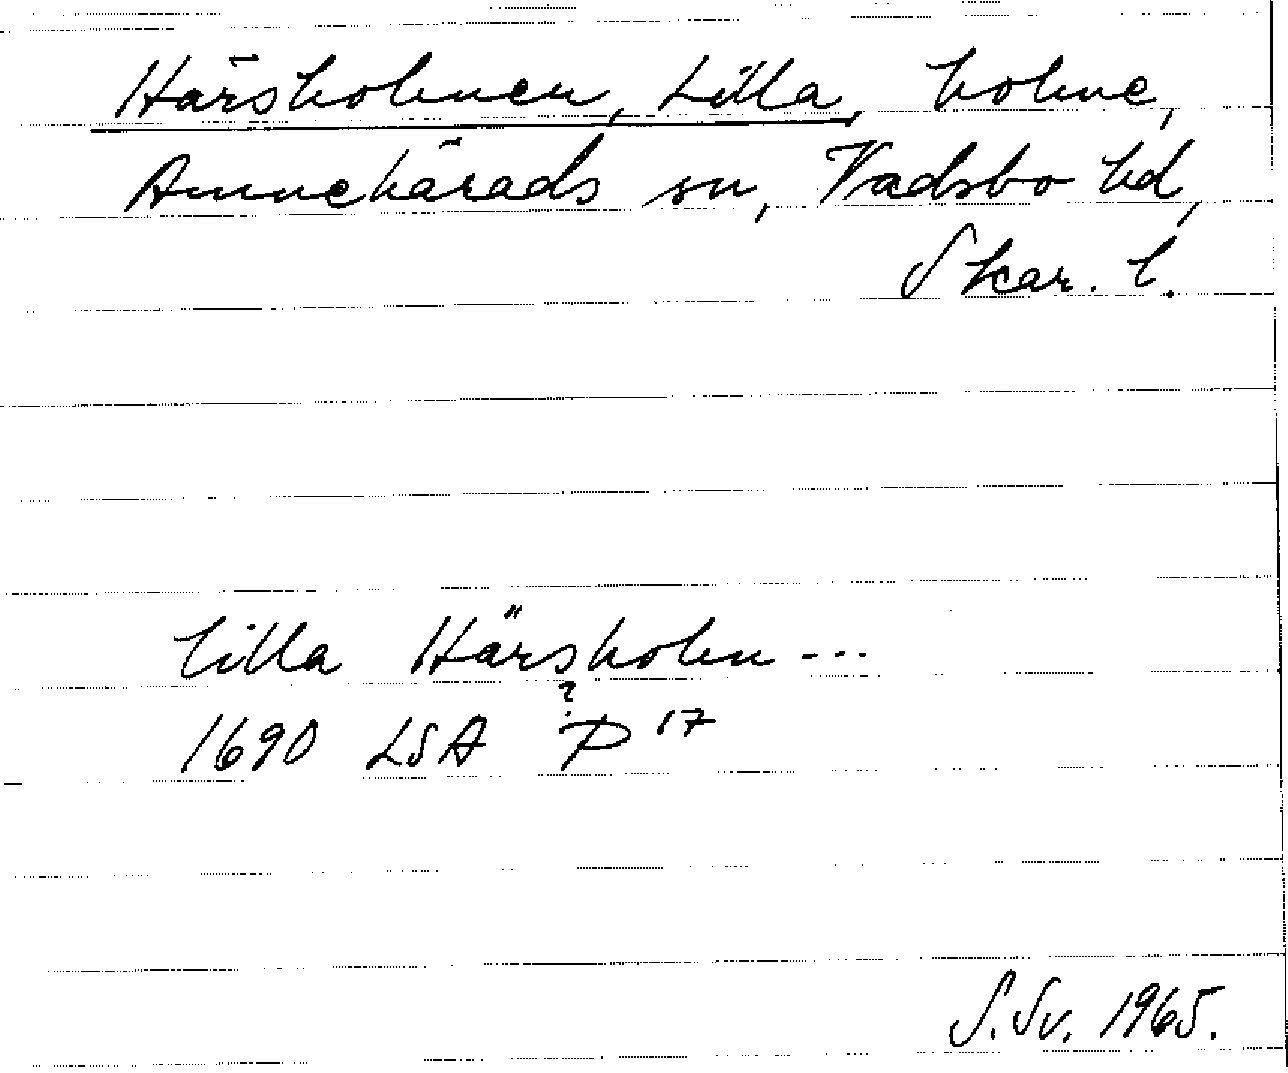 Härsholmen, Lilla, holme,
Amnehärads sn, Vadsbo hd,
Skar. l.
lilla Härsholm ---
?
1690 LSA P 17
S. Sv. 1965.